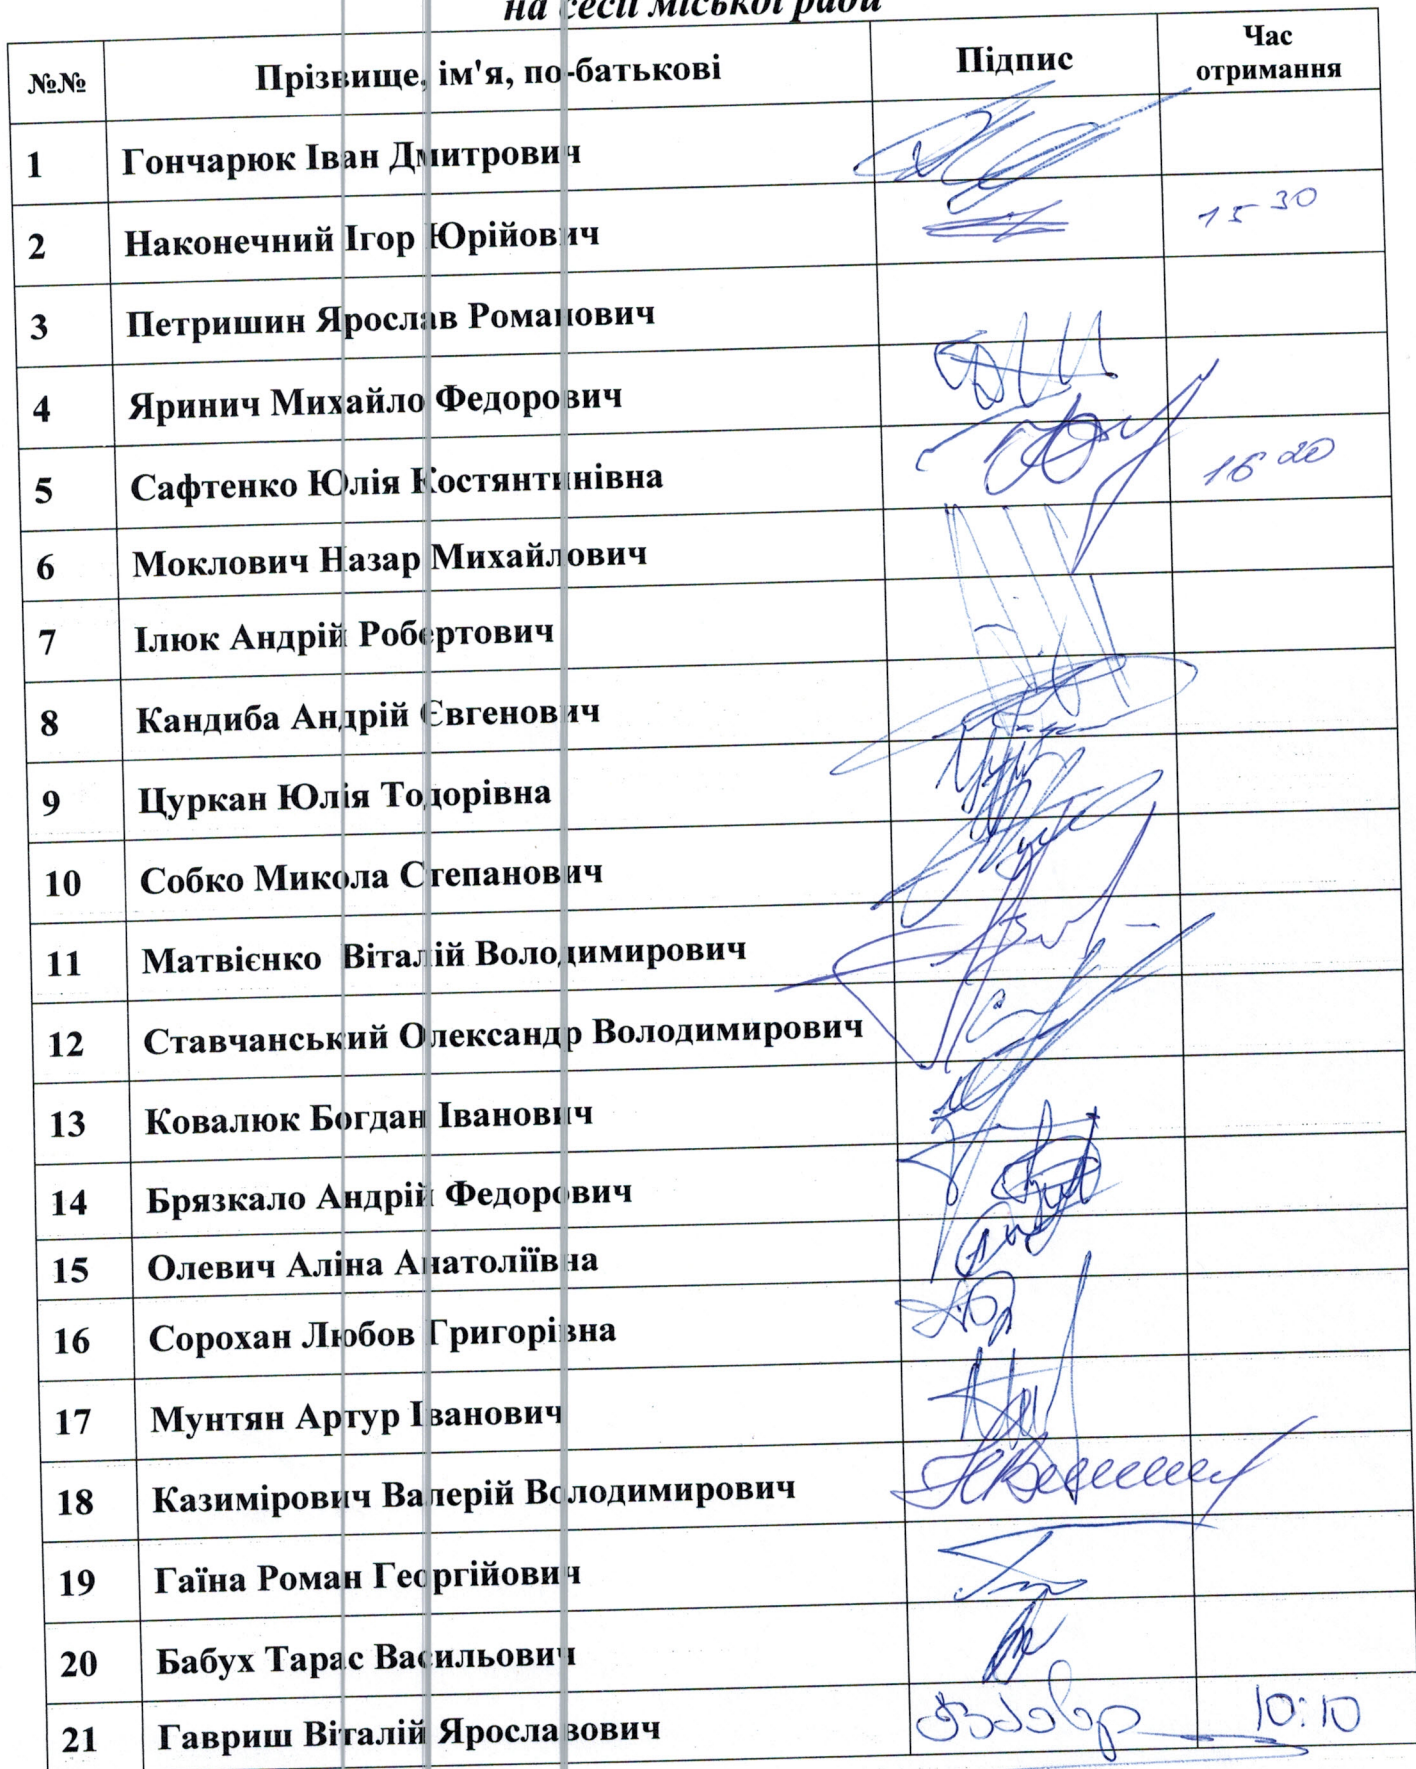 на сесії міської ради
№№ Прізвище, ім'я, по-батькові Підпис Час отримання
1 Гончарюк Іван Дмитрович
2 Наконечний Ігор Юрійович 15 30
3 Петришин Ярослав Романович
4 Яринич Михайло Федорович
5 Сафтенко Юлія Костянтинівна 16 20
6 Моклович Назар Михайлович
7 Ілюк Андрій Робертович
8 Кандиба Андрій Євгенович
9 Цуркан Юлія Тодорівна
10 Собко Микола Степанович
11 Матвієнко Віталій Володимирович
12 Ставчанський Олександр Володимирович
13 Ковалюк Богдан Іванович
14 Брязкало Андрій Федорович
15 Олевич Аліна Анатоліївна
16 Сорохан Любов Григорівна
17 Мунтян Артур Іванович
18 Казимірович Валерій Володимирович
19 Гаїна Роман Георгійович
20 Бабух Тарас Васильович
21 Гавриш Віталій Ярославович 10:10